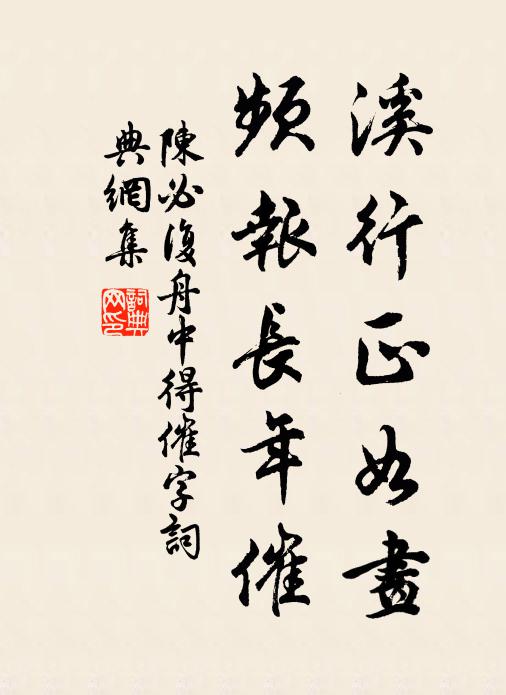 溪行正如畫
頻報長年催
陳必復舟中得催字詞
典網集
詞典
网印